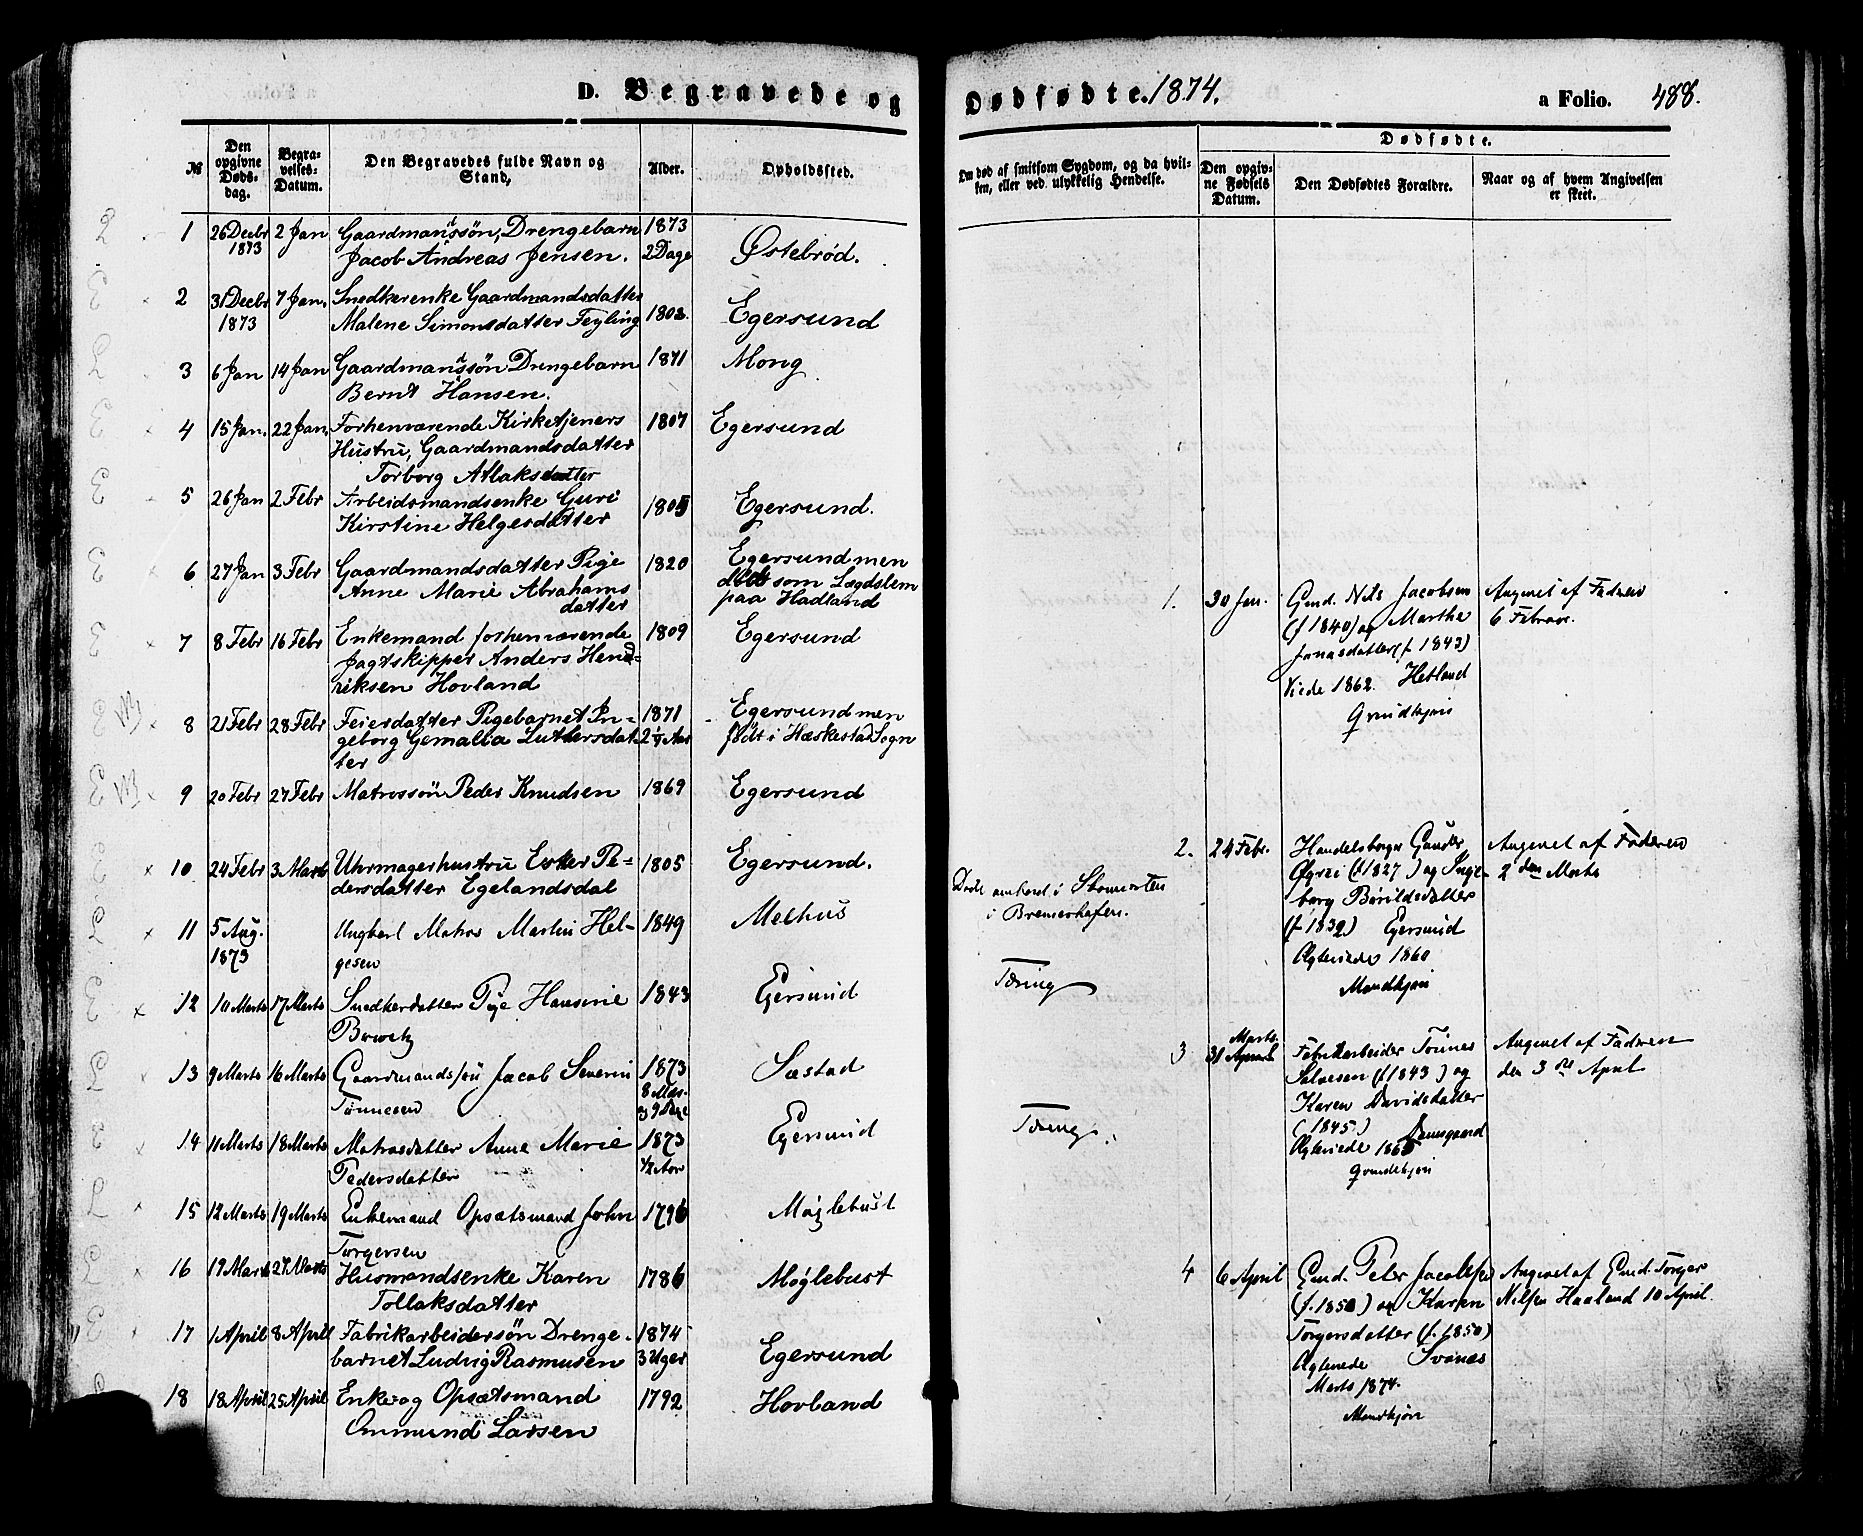 D. Begravede og
Dødfødte. 1874.
a Folio. 488.
№
Den opgivne Dødsdag.
Begravelses-Datum.
Den Begravedes fulde Navn og Stand,
Alder.
Opholdssted.
Om død af smitsom Sygdom, og da hvilken, eller ved ulykkelig Hendelse.
Dødfødte.
Den opgivne Fødsels Datum.
Den Dødfødtes Forældre.
Naar og af hvem Angivelsen er skeet.
1 26 Decbr 2 Jan Gaardmandssøn, Drengebarn 1873
1873 Jacob Andreas Jensen. 2 Dage Østebrød.
2 31 Decbr 7 Jan. Snedkerenke Gaardmandsdatter
1873 Malene Simonsdatter Feyling 1802. Egersund
3 6 Jan 14 Jan Gaardmandssøn Drengebarn 1871 Mong
Bernt Hansen.
4 15 Jan. 22 Jan. Forhenværende Kirketjeners 1807 Egersund
Hustru, Gaardmandsdatter
Torborg Atlaksdatter
5 26 Jan 2 Febr Arbeidsmandsenke Guri
Kirstine Helgesdatter 1805 Egersund.
6 27 Jan 3 Febr Gaardmandsdatter Pige 1820 Egersund men
Anne Marie Abrahams døde som Lægdslem
datter paa Hadland
7 8 Febr 16 Febr Enkemand forhenværende 1809 Egersund
Jagtskipper Anders Hend-
riksen Hovland
8 21 Febr 28 Febr Feierdatter Pigebarnet In- 1871 Egersund men
geborg Gemalia Luthersdat- født i Hæskestad Sogn
ter
9 20 Febr 27 Febr Matrossøn Peder Knudsen 1869 Egersund
10 24 Febr 3 Marts Uhrmagerhustru Ester Pe- 1805 Egersund.
dersdatter Egelandsdal
11 5 Aug. Ungkarl Matros Martin Hel- 1849 Melhus
1873 gesen
i Bremerhafen.
12 10 Marts 17 Marts Snedkerdatter Pige Hansine 1843 Egersund Tæring
13 9 Marts 16 Marts Gaardmandssøn Jacob Severin 1873 Sæstad
Tønnesen
14 11 Marts 18 Marts Matrosdatter Anne Marie 1873 Egersund Tæring.
Pedersdatter 1/2 Aar
15 12 Marts 19 Marts Enkemand Opsætsmand John 1796 Møglebust
Torgersen
16 19 Marts 27 Marts Husmandsenke Karen 1786 Møglebust
Tollaksdatter
17 1 April 8 April Fabrikarbeidersøn Drenge- 1874
barnet Ludvig Rasmusen 3 Uger Egersund
18 18 April 25 April Enke og Opsætsmand 1792 Hovland
Ommund Larsen
1. 30 Jan. Gmd. Nils Jacobsen Angivet af Faderen
(f 1840) og Marthe 6 Februar.
Jonasdatter (f 1843)
Viede 1862. Hetland
Qvindkjøn
2. 24 Febr. Handelsborger Angivet af Faderen
(f 1827) og Inge- 2 den Marts
borg Børildsdatter
(f 1832) Egersund
Ægteviede 1860
Mandkjøn
3 31 Marts Fabrikarbeider Tønnes Angivet af Faderen
Salvesen (f 1843) og den 3 die April
Karen Davidsdatter
(1845.) Damsgaard
Ægteviede 1865
Qvindekjøn
4 6 April Gmd. Peter Jacobsen Angivet af Gmd. Torger
(f. 1850) og Karen Nilsen Haaland 10 April.
Torgersdatter (f. 1850)
Ægteviede Svanes
Marts 1874.
Mandkjøn